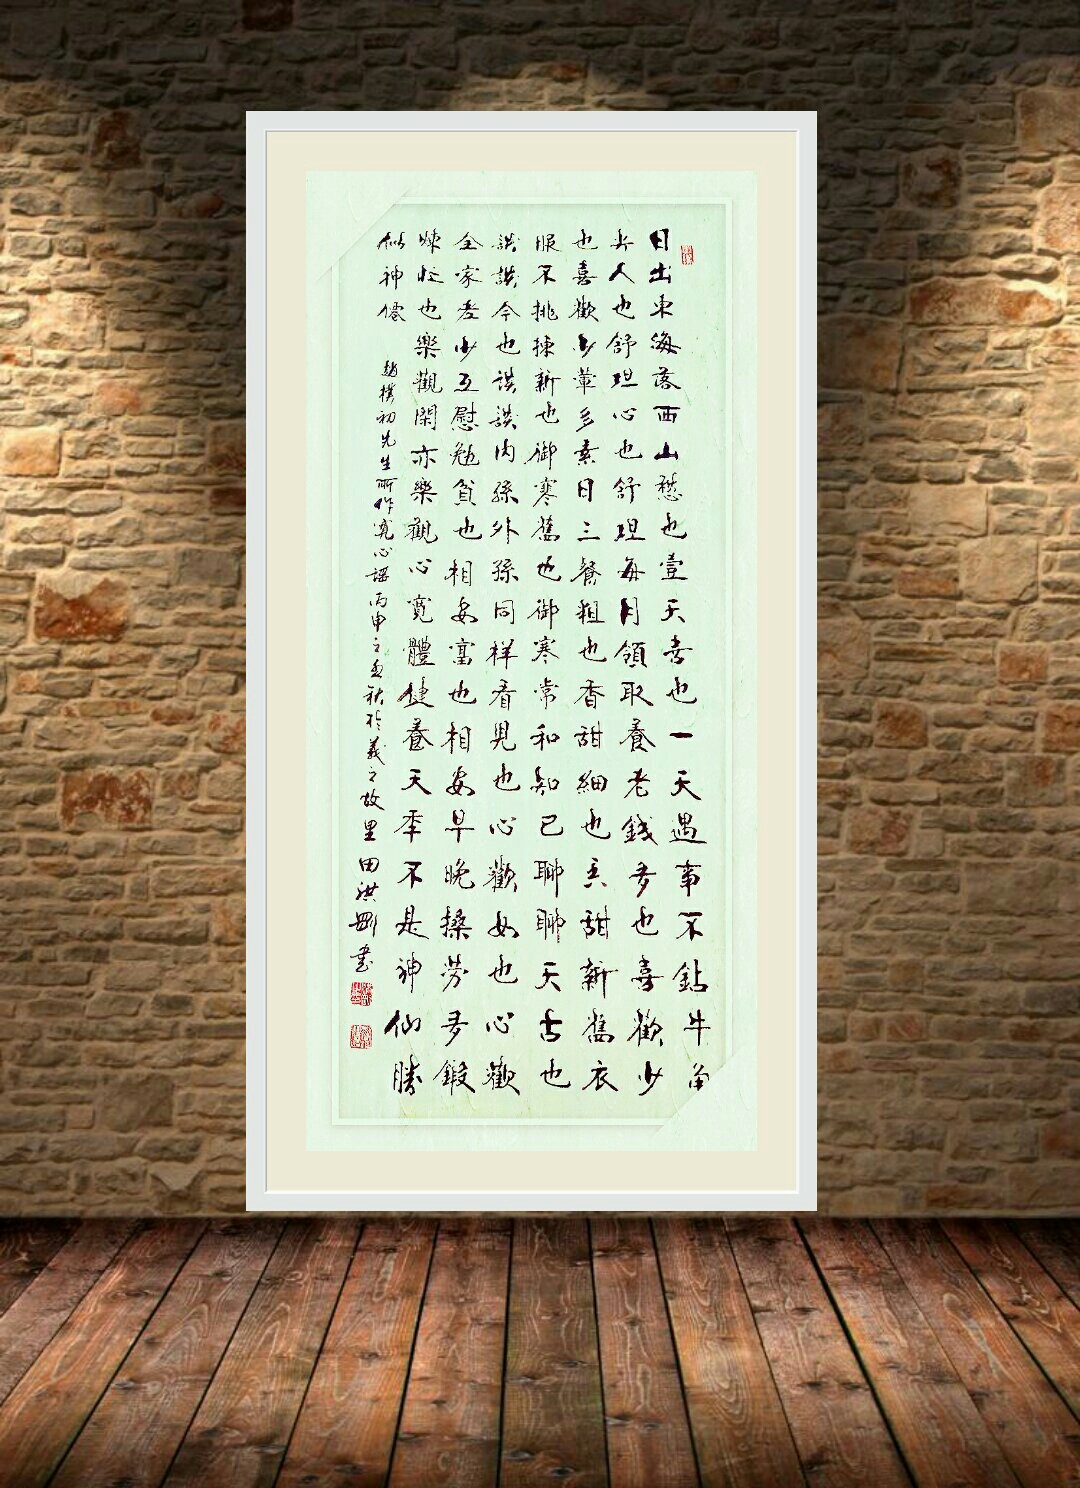 日出東海落西山愁也壹天喜也一天遇事不鉆牛角
尖人也舒坦心也舒坦每月領取養老錢多也喜歡少
也喜歡少葷多素日三餐粗也香甜細也香甜新舊衣
服不挑揀新也御寒舊也御寒常和知己聊聊天古也
談談今也談談內孫外孫同樣看兒也心歡女也心歡
全家老少互慰勉貧也相安富也相安早晚操勞多鍛
煉忙也樂觀閑亦樂觀心寬體健養天年不是神仙勝
似神僊
趙樸初先生所作寬心謠丙申之秋於羲之故里田洪剛書